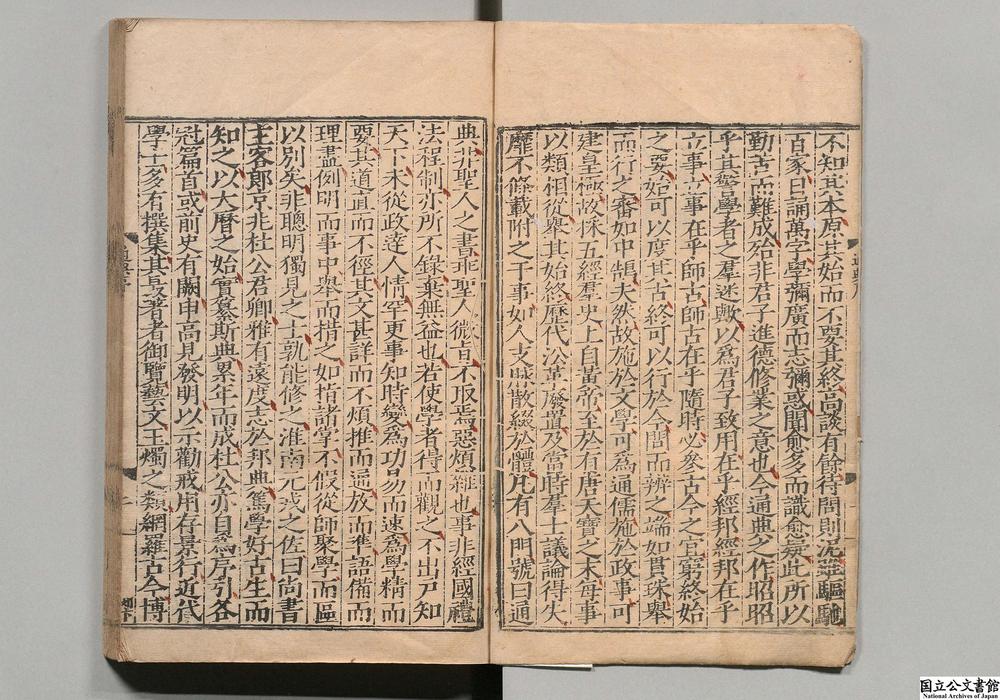 不知其本原其始而不要其終高談有餘待問則泥雖驅馳
百家日誦萬字學彌廣而志彌惑聞愈多而識愈疑此所以
勤古而難成殆非君子進德修業之意也今通典之作昭昭
乎其警學者之羣迷歟以為君子致用在乎經邦經邦在乎
立事立事在乎師古師古在乎隨時必參古今之宜窮始終
之要始可以度其古終可以行於今問而辨之端如貫珠舉
而行之審如中鵠夫然故施於文學可為通儒施於政事可
建皇極故採五經羣史上自黃帝至於有唐天寶之末每事
以類相從舉其始終歷代沿革廢置及當時羣士議論得失
靡不條載附之于事如人支脈散綴於體凡有八門號曰通
典非聖人之書乖聖人微旨不取焉惡煩雜也事非經國禮
法程制亦所不錄棄無益也若使學者得而觀之不出戶知
天下未從政達人情罕更事知時變為功易而速為學精而
要其道直而不徑其文甚詳而不煩推而通放而準語備而
理盡例明而事中舉而措之如指諸掌不假從師聚學而區
以別矣非聰明獨見之士孰能修之淮南元戎之佐曰尚書
主客郎京兆杜公君卿雅有遠度志於邦典篤學好古生而
知之以大曆之始實纂斯典累年而成杜公亦自為序引各
冠篇首或前史有闕申高見發明以示勸戒用存景行近代
學士多有撰集其最著者御覽藝文玉燭之類網羅古今博
国立公文書館
National Archives of Japan